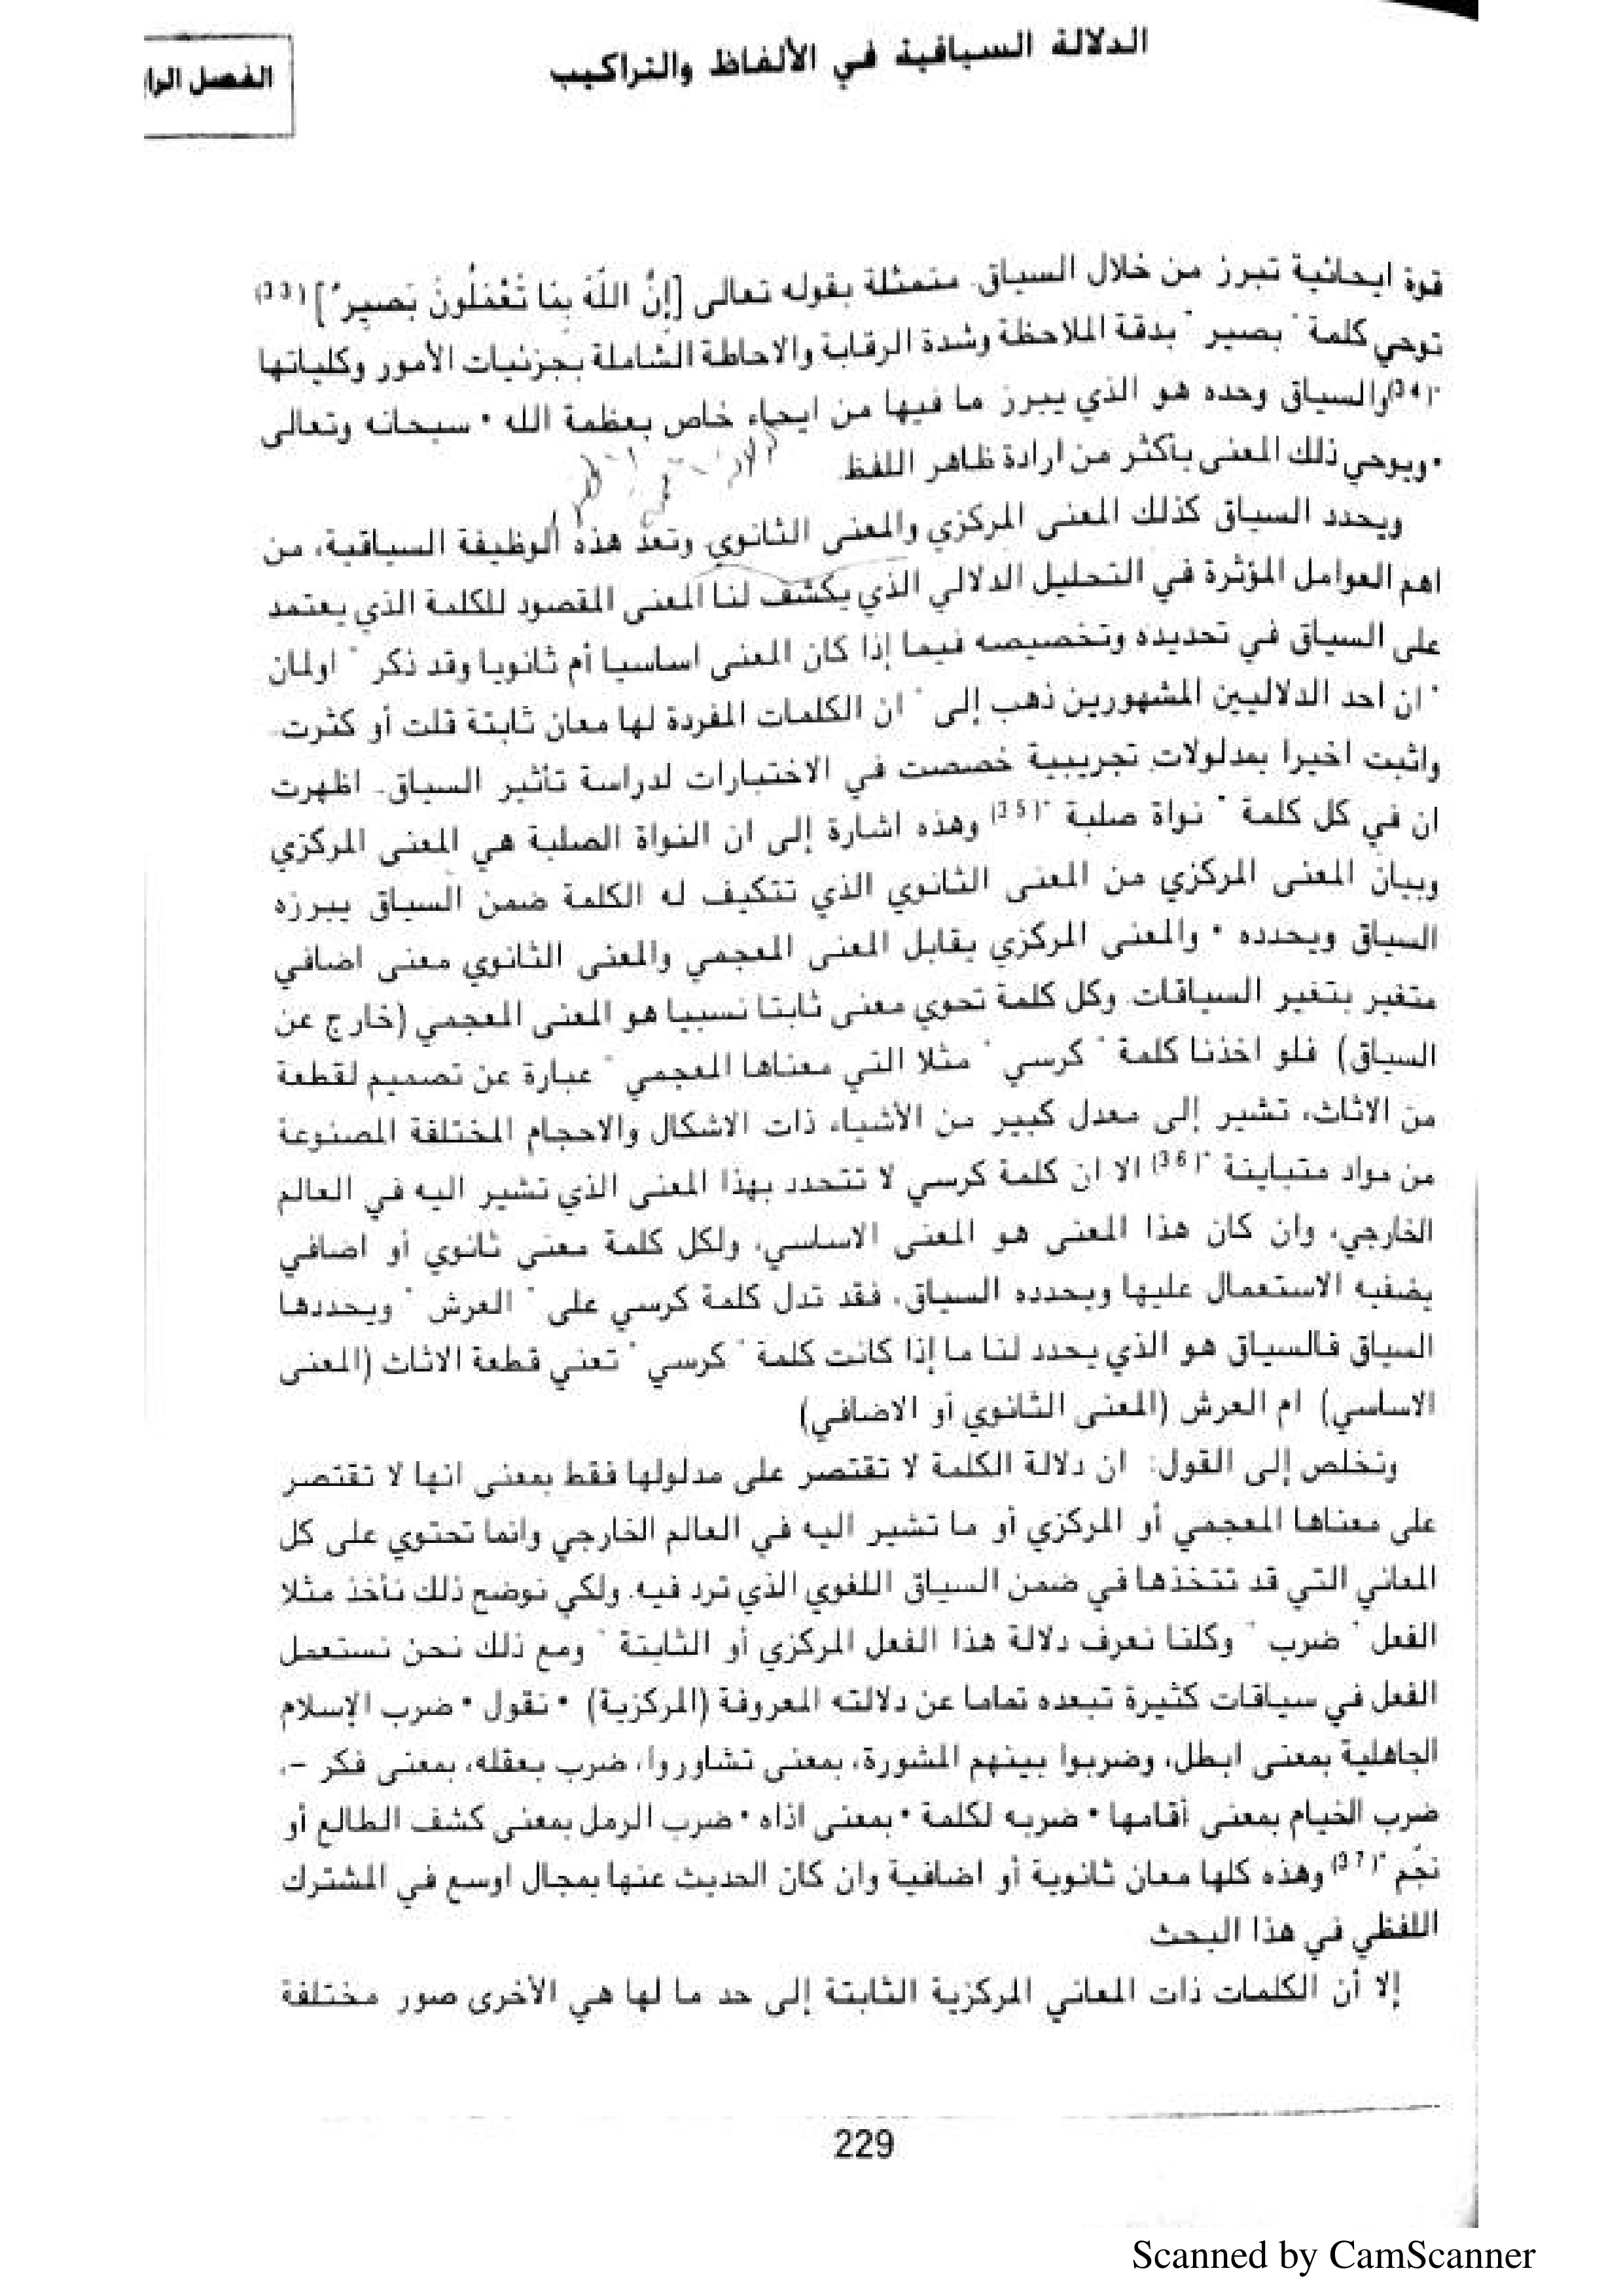 الدلالة السياقية في الألفاظ والتراكيب
الفصل الرا
قوة ايحائية تبرز من خلال السياق. متمثلة بقوله تعالى [إِنَّ اللَّهَ بِمَا تَعْمَلُونَ بَصِيرٌ] (33)
توحي كلمة " بصير " بدقة الملاحظة وشدة الرقابة والاحاطة الشاملة بجزئيات الأمور وكلياتها
"(34) والسياق وحده هو الذي يبرز ما فيها من ايحاء خاص بعظمة الله • سبحانه وتعالى
• ويوحي ذلك المعنى بأكثر من ارادة ظاهر اللفظ.
ويحدد السياق كذلك المعنى المركزي والمعنى الثانوي وتعد هذه الوظيفة السياقية، من
اهم العوامل المؤثرة في التحليل الدلالي الذي يكشف لنا المعنى المقصود للكلمة الذي يعتمد
على السياق في تحديده وتخصيصه فيما إذا كان المعنى اساسيا أم ثانويا وقد ذكر " اولمان
" ان احد الدلاليين المشهورين ذهب إلى " ان الكلمات المفردة لها معان ثابتة قلت أو كثرت.
واثبت اخيرا بمدلولات تجريبية خصصت في الاختبارات لدراسة تأثير السياق. اظهرت
ان في كل كلمة " نواة صلبة "(35) وهذه اشارة إلى ان النواة الصلبة هي المعنى المركزي
وبيان المعنى المركزي من المعنى الثانوي الذي تتكيف له الكلمة ضمن السياق يبرزه
السياق ويحدده • والمعنى المركزي يقابل المعنى المعجمي والمعنى الثانوي معنى اضافي
متغير بتغير السياقات وكل كلمة تحوي معنى ثابتا نسبيا هو المعنى المعجمي (خارج عن
السياق) فلو اخذنا كلمة " كرسي " مثلا التي معناها المعجمي " عبارة عن تصميم لقطعة
من الاثاث، تشير إلى معدل كبير من الأشياء ذات الاشكال والاحجام المختلفة المصنوعة
من مواد متباينة "(36) الا ان كلمة كرسي لا تتحدد بهذا المعنى الذي تشير اليه في العالم
الخارجي، وان كان هذا المعنى هو المعنى الاساسي، ولكل كلمة معنى ثانوي أو اضافي
يضفيه الاستعمال عليها ويحدده السياق، فقد تدل كلمة كرسي على " العرش " ويحددها
السياق فالسياق هو الذي يحدد لنا ما إذا كانت كلمة " كرسي " تعني قطعة الاثاث (المعنى
الاساسي) ام العرش (المعنى الثانوي أو الاضافي)
ونخلص إلى القول: ان دلالة الكلمة لا تقتصر على مدلولها فقط بمعنى انها لا تقتصر
على معناها المعجمي أو المركزي أو ما تشير اليه في العالم الخارجي وانما تحتوي على كل
المعاني التي قد تتخذها في ضمن السياق اللغوي الذي ترد فيه. ولكي نوضح ذلك نأخذ مثلا
الفعل " ضرب " وكلنا نعرف دلالة هذا الفعل المركزي أو الثابتة " ومع ذلك نحن نستعمل
الفعل في سياقات كثيرة تبعده تماما عن دلالته المعروفة (المركزية) • نقول • ضرب الإسلام
الجاهلية بمعنى ابطل، وضربوا بينهم المشورة، بمعنى تشاوروا، ضرب بعقله، بمعنى فكر -،
ضرب الخيام بمعنى أقامها • ضربه لكلمة • بمعنى اذاه • ضرب الرمل بمعنى كشف الطالع أو
نجّم "(37) وهذه كلها معان ثانوية أو اضافية وان كان الحديث عنها بمجال اوسع في المشترك
اللفظي في هذا البحث
إلا أن الكلمات ذات المعاني المركزية الثابتة إلى حد ما لها هي الأخرى صور مختلفة
229
Scanned by CamScanner